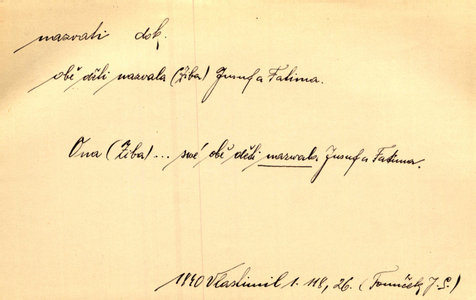 nazvati dok.
obě děti nazvala (Ziba) Jusuf a Fatima.
Ona (Ziba) ... své obě děti nazvala Jusuf a Fatima.
1840 Vlastimil 1. 118, 26. (Tomíček J. S.)